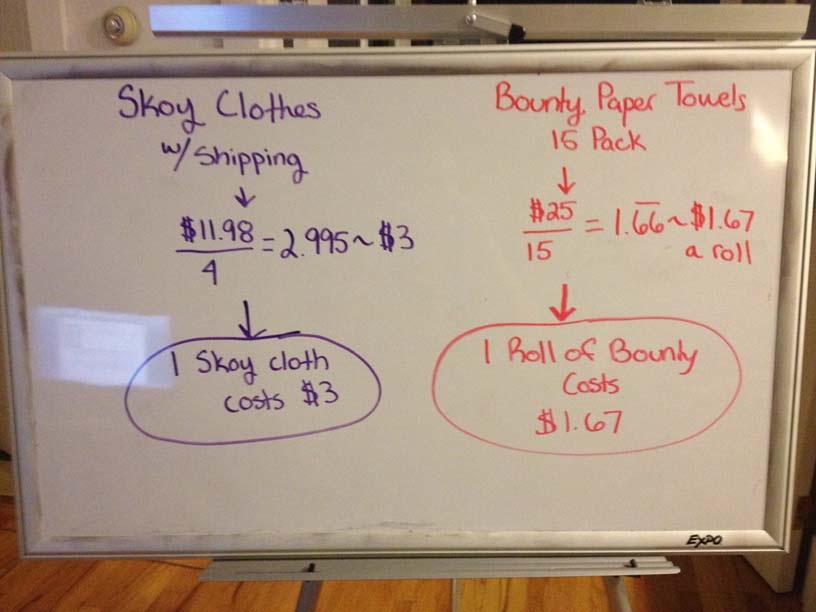 Skoy Clothes
w/ Shipping
↓
$11.98/4 = 2.995 ~ $3
↓
1 Skoy cloth
costs $3
Bounty Paper Towels
15 Pack
↓
$25/15 = 1.6̅6̅ ~ $1.67
a roll
↓
1 Roll of Bounty
Costs
$1.67
EXPO